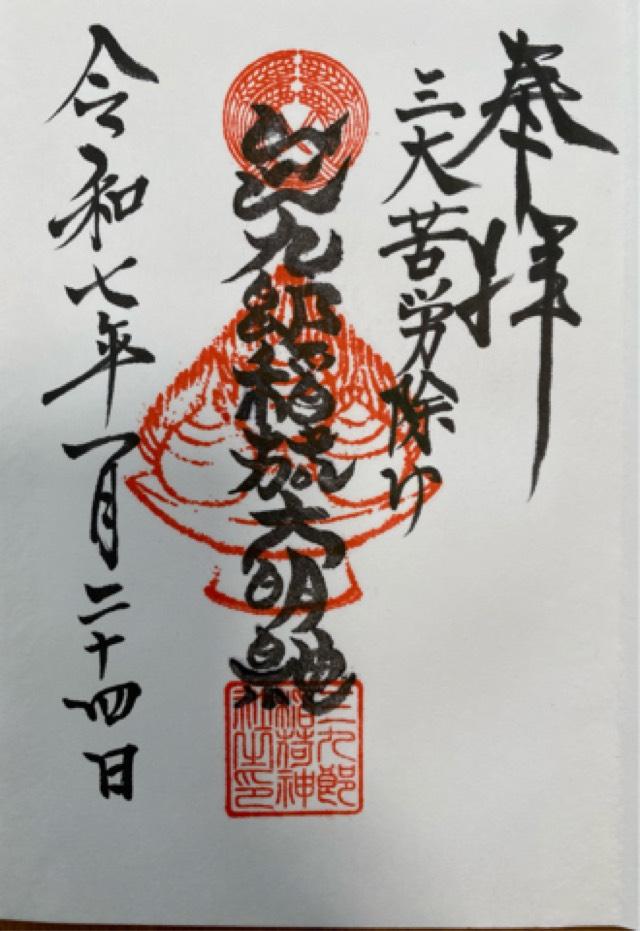 奉拝
三大苦労除け
三九郎稲荷大明神
三九郎
稲荷神
社之印
令和七年一月二十四日